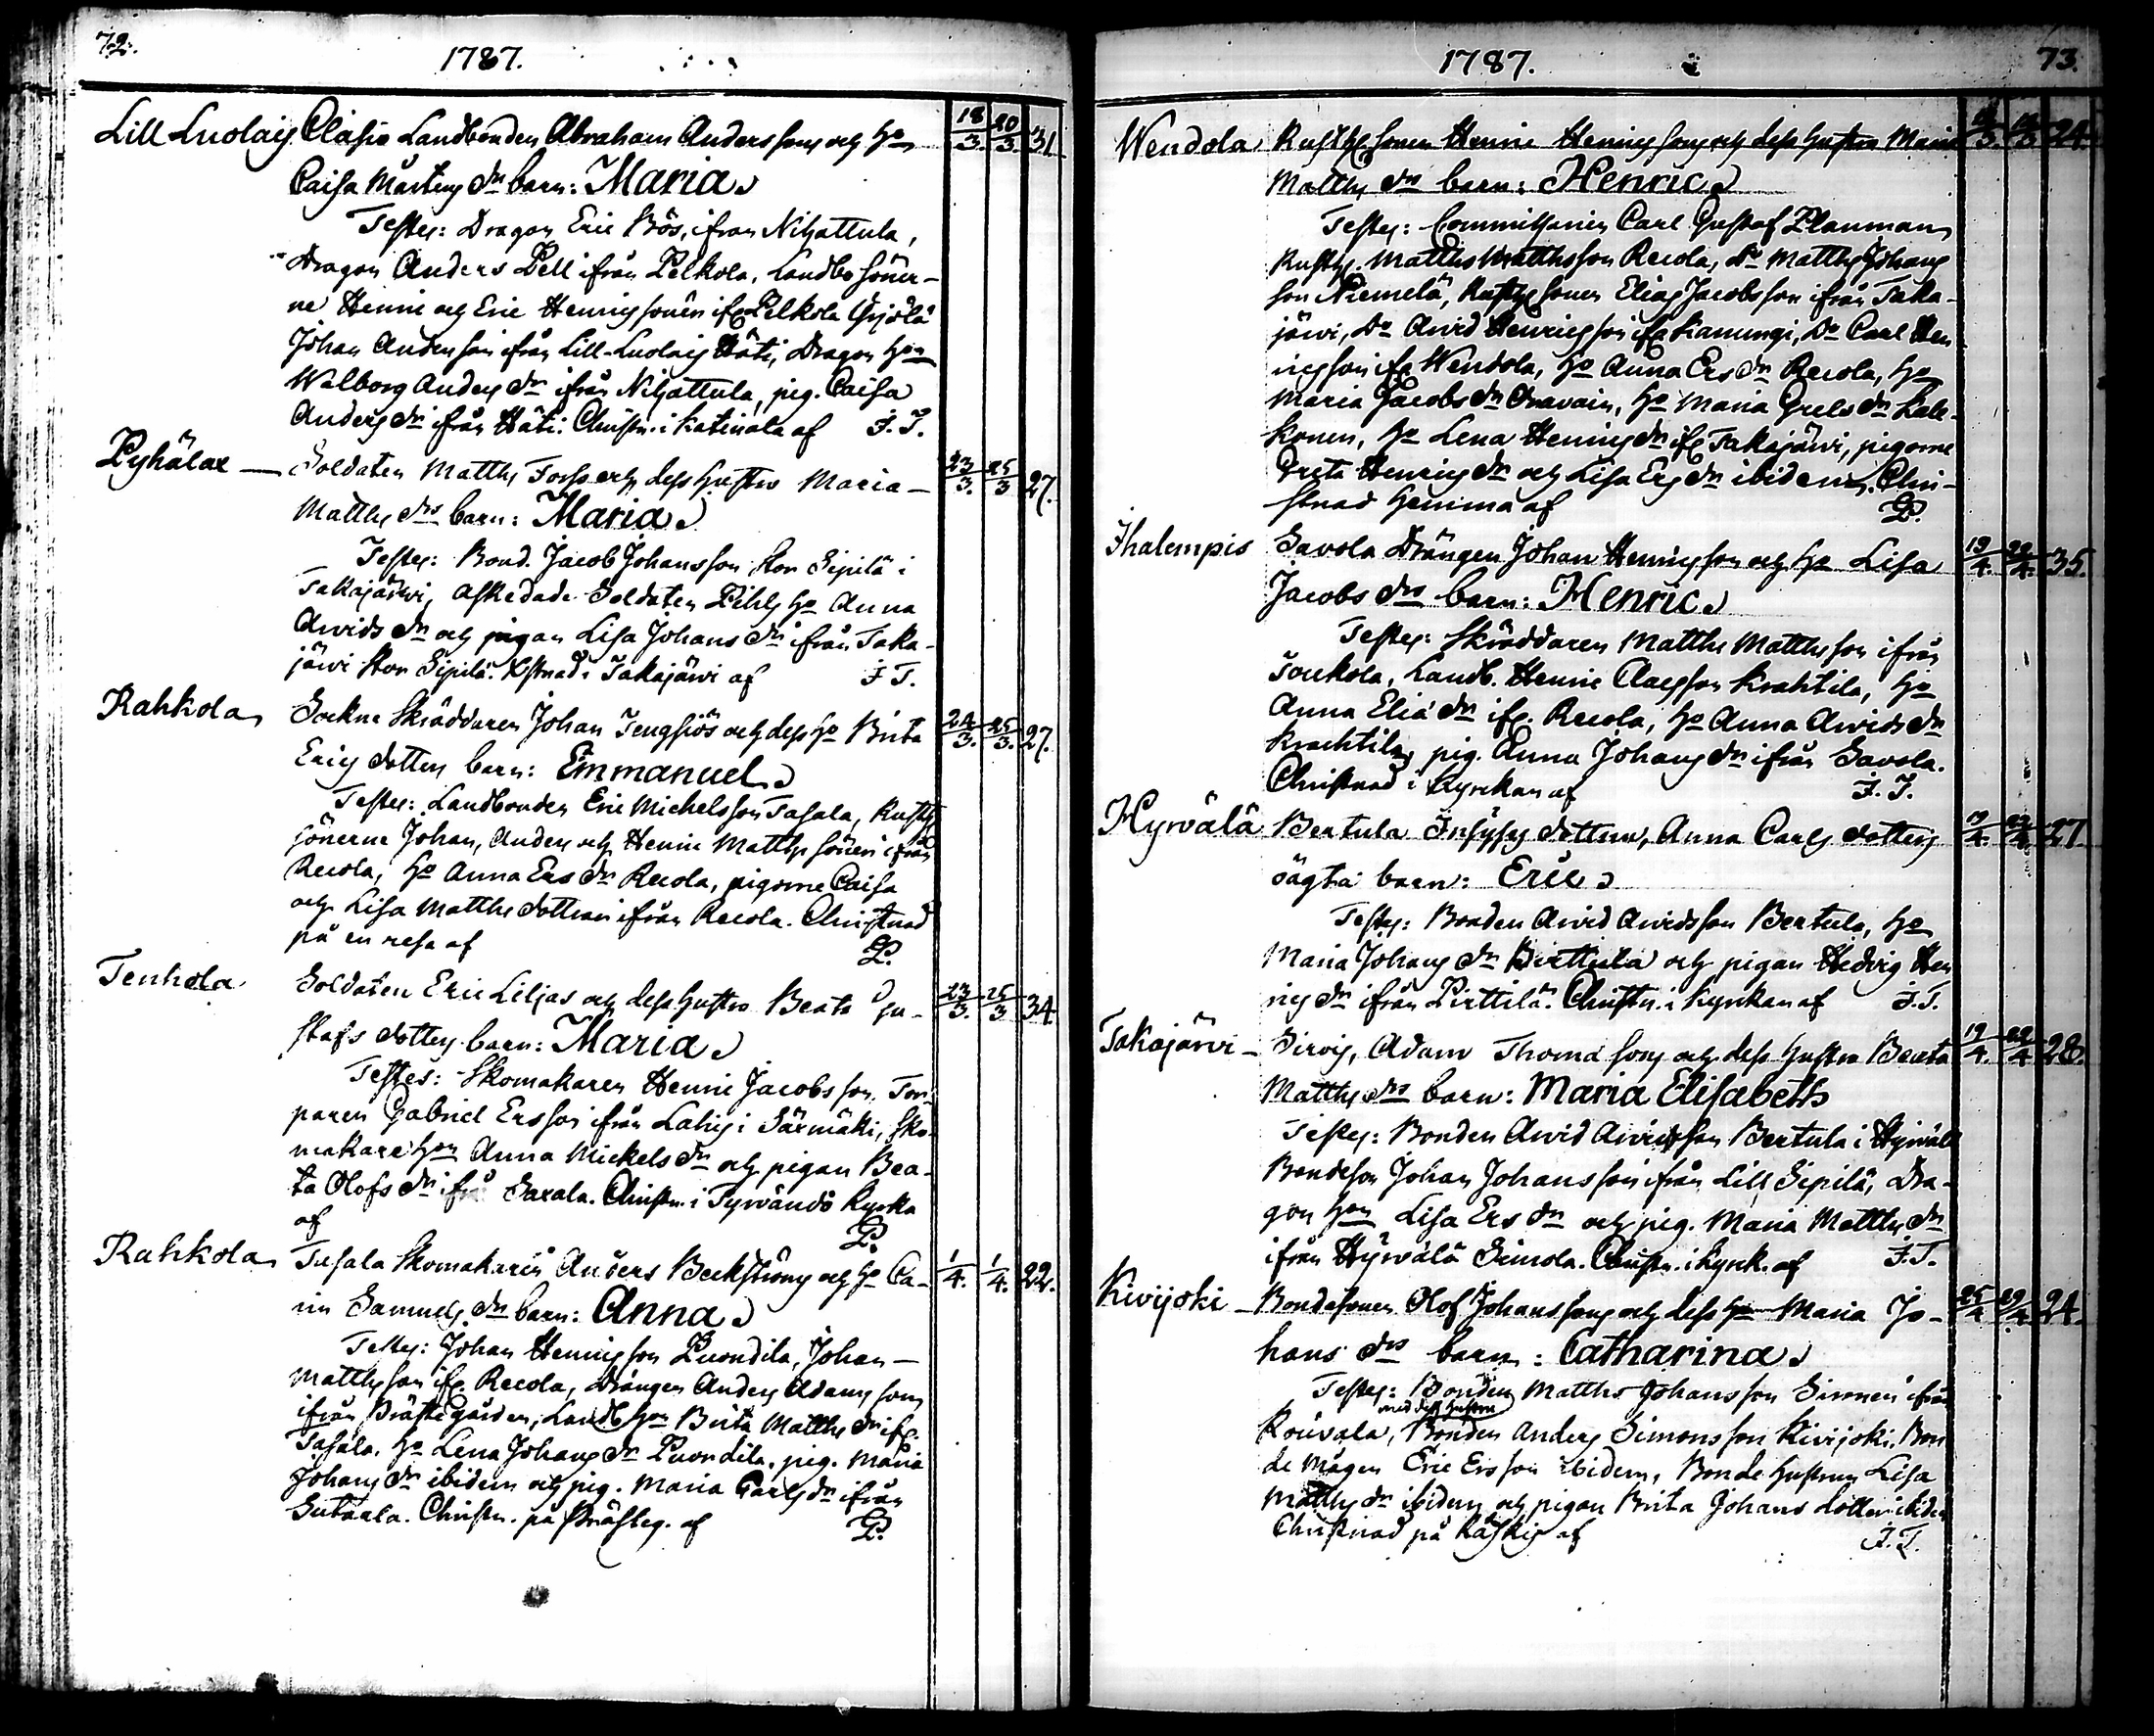 72.
1787.
Lill Luolais Olasia Landbonden Abraham Anderssons och ho 18/3. 20/3. 31.
Caisa Mårtens dn barn: Maria.
Testes: Dragon Eric Bös, ifrån Nihattula,
Dragon Anders Pell ifrån Pelkola, Landbosöner-
ne Henric och Eric Henricssöner ifr. Pelkola
Johan Andersson ifrån Lill-Luolais Häti, Dragon hon
Walborg Anders dn ifrån Nihattula, pig. Caisa
Anders dn ifrån Häti. Christn. i Katinala af J. T.
Pyhälax — Soldaten Matths Forss och dess hustru Maria — 23/3. 25/3 27.
Matths drs barn: Maria.
Testes: Bond. Jacob Johansson Stor Sipilä i
Takajärwi, afskedade Soldaten Pihls ho Anna
Arvids dn och pigan Lisa Johans dn ifrån Taka-
järwi Stor Sipilä. Xstnad i Takajärwi af J. T.
Rahkola Sockne Skräddaren Johan Tengsiös och dess ho Brita 24/3. 25/3. 27.
Erics dotters barn: Emmanuel.
Testes: Landbonden Eric Michelsson Tasala, Rusth.
sönerne Johan, Anders och Henric Matths söner ifrån
Recola, ho Anna Ers dn Recola, pigorne Caisa
och Lisa Matths dottrar ifrån Recola. Christnad
på en resa af P.
Tenhola Soldaten Eric Liljas och dess hustru Beata Gu- 23/3. 25/3 34.
stafs dotters barn: Maria.
Testes: Skomakaren Henric Jacobsson, Tor-
paren Gabriel Ersson ifrån Lahis i Särmäki, Sko-
makare hon Anna Mickels dn och pigan Bea-
ta Olofs dn ifrån Saxala. Christn. i Tyrwändö Kyrka
af P.
Rahkola Tasala Skomakaren Anders Beckströms och ho Ca- 1/4. 1/4. 22.
rin Samuels dn barn: Anna.
Testes: Johan Henricsson Puondila, Johan —
Matthsson ifr. Recola, Drängen Anders Adamsson
ifrån Prästegården, Landb. hon Brita Matths dn ifr.
Tasala, ho Lena Johans dn Puondila, pig. Maria
Johans dn ibidem och pig. Maria Carls dn ifrån
Sutaala. Christn. på Prästeg. af P.
1787.
73.
Wendola Rusth. sonen Henric Henricssons och dess hustru Maria 24.
Matths dn barn: Henric.
Testes: Commissarien Carl Gustaf Planman,
Rusth. Matths Matthsson Recola, do Matths Johans
son Niemelä, Rusth. sonen Elias Jacobsson ifrån Taka-
järwi, Do Arvid Henricsson ifr. Kanungi, Do Carl Hen
ricsson ifr. Wendola, ho Anna Ers dn Recola, ho
Maria Jacobs dn Oravain, ho Maria Grels dn Kak-
konen, ho Lena Henrics dn ifr. Takajärwi, pigorne
Greta Henrics dn och Lisa Ers dn ibidem. Chri-
stnad hemma af P.
Ihalempis Savola Drängen Johan Henricsson och ho Lisa 19/4. 22/4. 35.
Jacobs drs barn: Henric.
Testes: Skräddaren Matths Matthsson ifrån
Toukola, Landb. Henric Claesson Krahtila, ho
Anna Eliæ dn ifr. Recola, ho Anna Arvids dn
Krachtila, pig. Anna Johans dn ifrån Savola.
Christnad i Kyrckan af J. T.
Hyrwälä Bertula Inhyses dottren, Anna Carls dotters 19/4. 22/4. 27
oägta barn: Eric.
Testes: Bonden Arvid Arvidsson Bertula, ho
Maria Johans dn Birttula och pigan Hedvig Hen
rics dn ifrån Pirttilä. Christn. i Kyrkan af J. T.
Takajärwi — Sirvis, Adam Thomæ sons och dess hustru Beata 19/4. 22/4 28.
Matths drs barn: Maria Elisabeth
Testes: Bonden Arvid Arvidsson Bertula i Hyrwälä
Bondeson Johan Johansson ifrån Lill Sipilä, Dra-
gon hon Lisa Ers dn och pig. Maria Matths dn
ifrån Hyrwälä Simola. Christn. i Kyrk. af J. T.
Kivijoki — Bondesonen Olof Johanssons och dess ho Maria Jo- 25/4 29/4. 24.
hans drs barn: Catharina.
Testes: Bonden Matths Johansson Simonen ifrån
med dess hustru
Rouvala, Bonden Anders Simonsson Kivijoki, Bon
de mågen Eric Ersson ibidem, Bonde hustrun Lisa
Matths dn ibidem och pigan Brita Johans dotter ibidem
Christnad på af J. T.